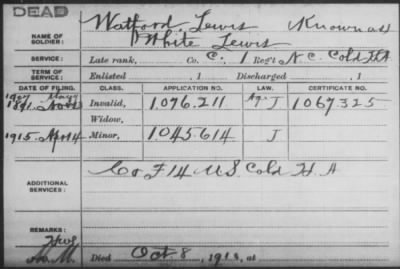 DEAD
NAME OF SOLDIER: Watford, Lewis Known as
White Lewis
SERVICE: Late rank, Co. C. 1 Reg't N.C. Cold H.A
TERM OF SERVICE: Enlisted , 1 Discharged , 1
DATE OF FILING. CLASS. APPLICATION NO. LAW. CERTIFICATE NO.
1891 Invalid, 1.076.211 J 1067.325
Widow,
1915 Apr 14 Minor, 1.045.614 J
ADDITIONAL SERVICES: Co F 14 U.S. Cold H.A
REMARKS:
Died Oct 8, 191 , at